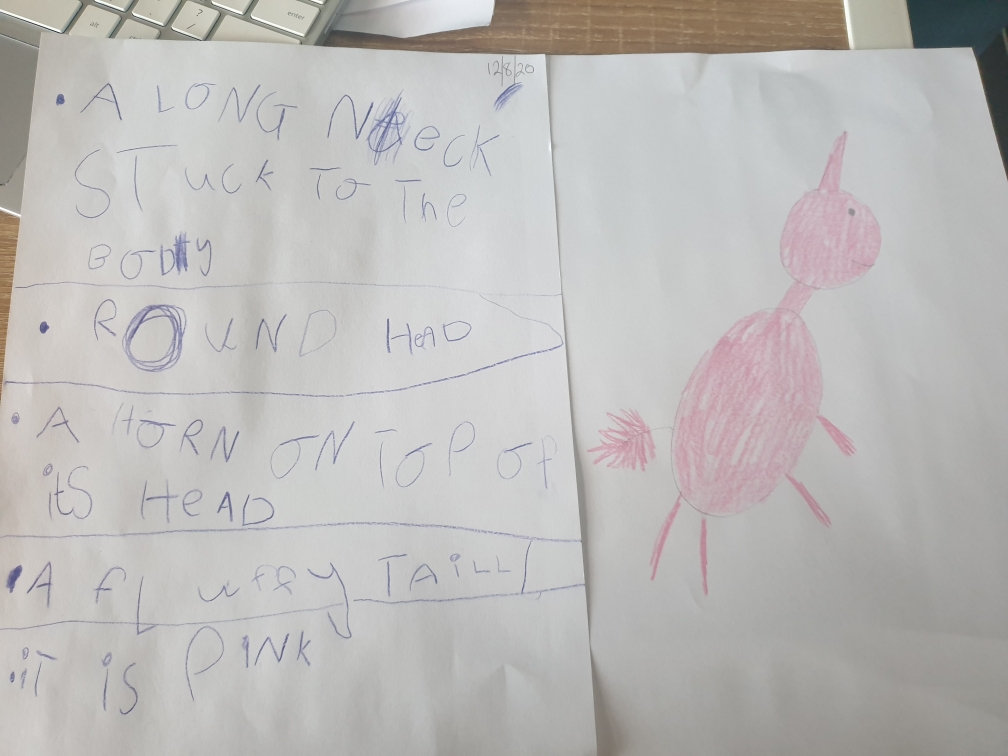 12/8/20
• A LONG NeCK
STuCK TO The
BODY
• ROUND HeAD
• A HORN ON TOP Of
itS HeAD
• A fLuffy TAiLL
• iT iS PiNK
? /
alt
enter